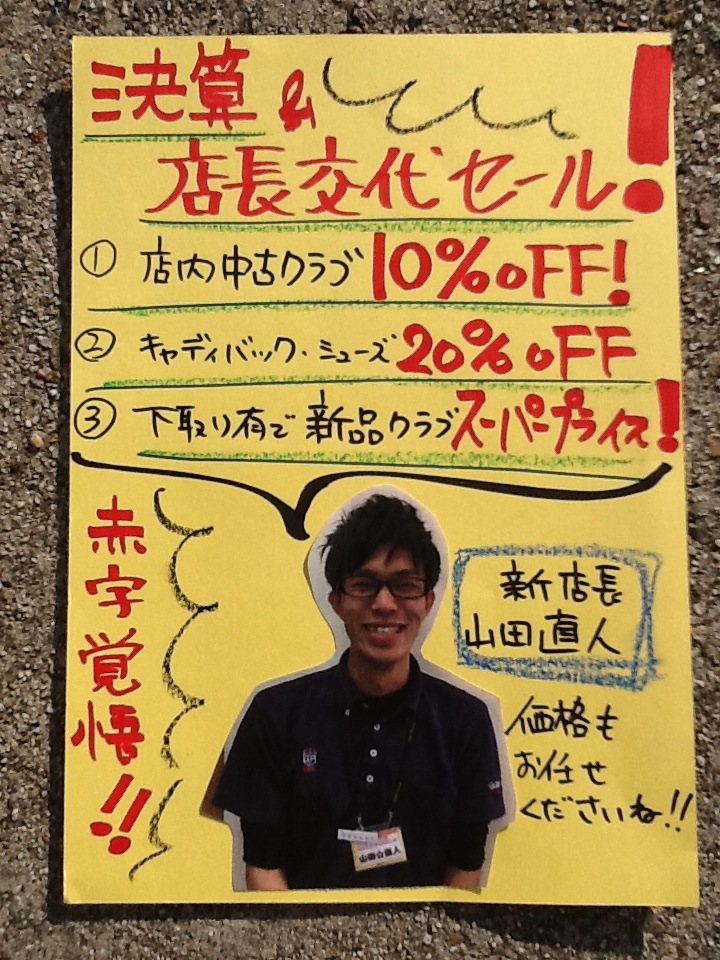 決算&
店長交代セール!
① 店内中古クラブ10%OFF!
② キャディバック・シューズ20%OFF
③ 下取り有で新品クラブスーパープライス!
赤字覚悟!!
新店長
山田直人
価格も
お任せ
くださいね!!